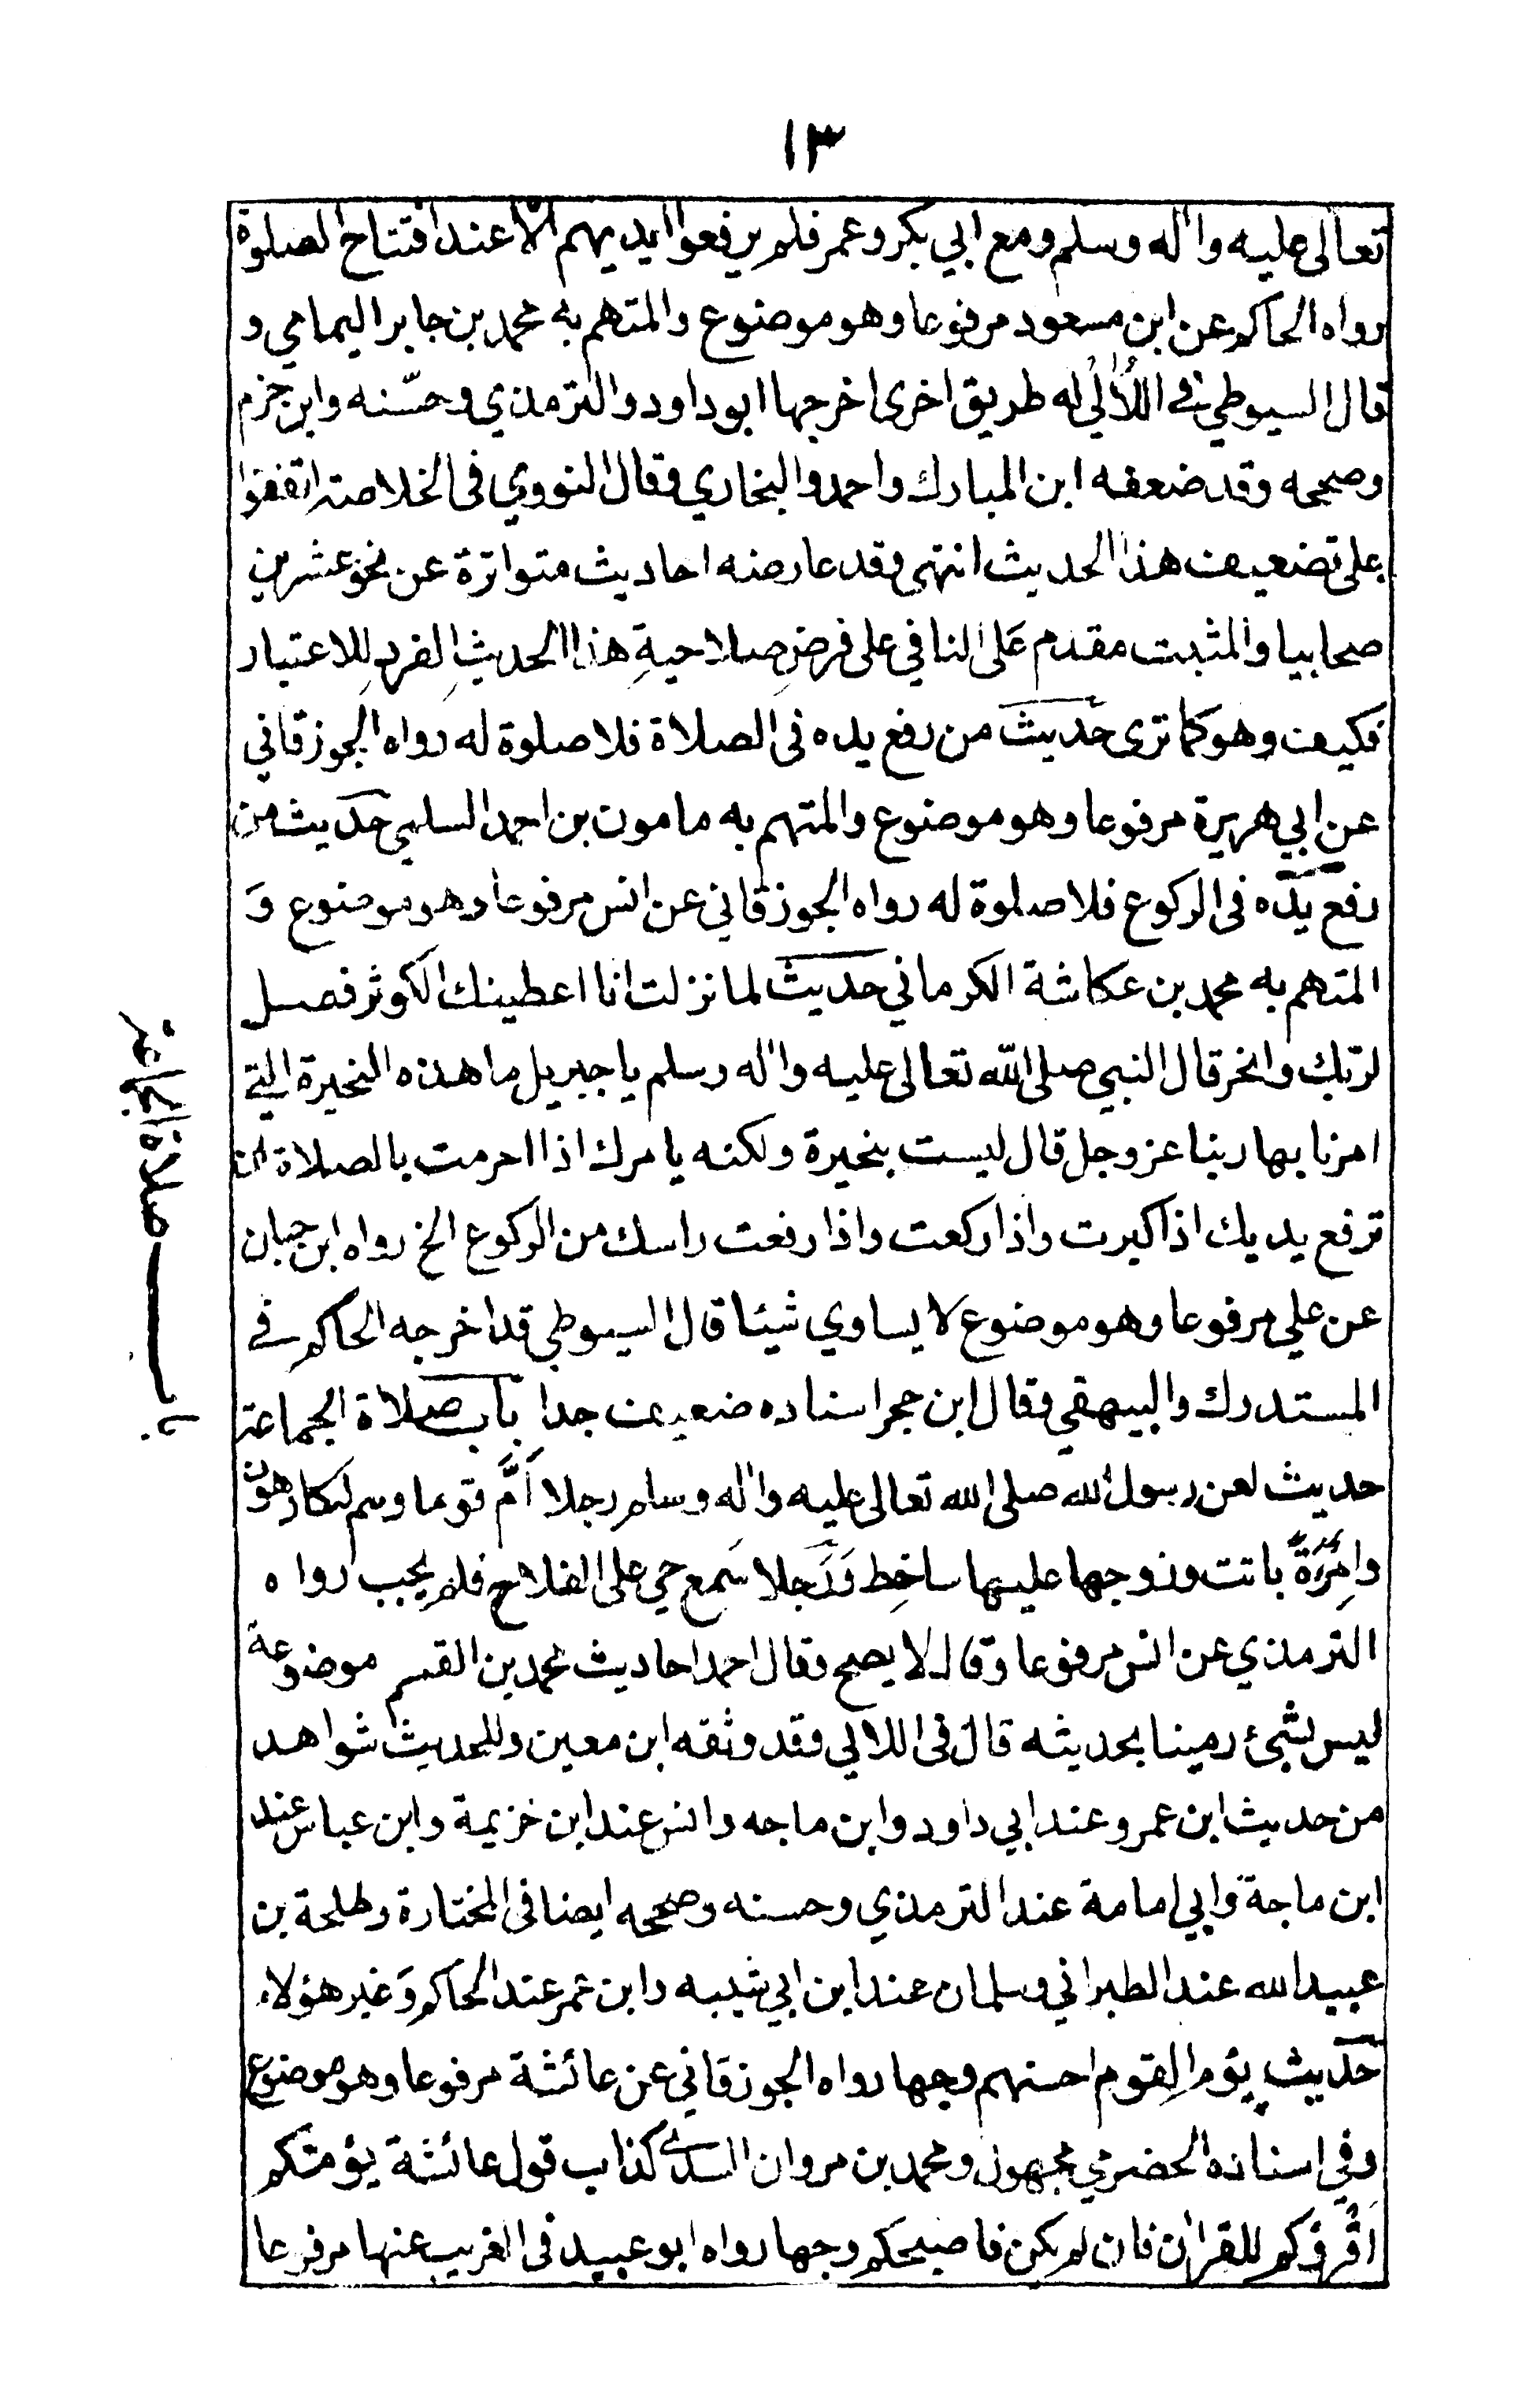 ١٣
تعالى عليه واٰله وسلم ومع ابي بكر وعمر فلم يرفعوا ايديهم الّا عند افتتاح الصلوة
رواه الحاكم عن ابن مسعود مرفوعا وهو موضوع والمتهم به محمد بن جابر اليمامي و
قال السيوطي في اللاٰلي له طريق اخرى اخرجها ابو داود والترمذي وحسّنه وابن حزم
وصححه وقد ضعفه ابن المبارك واحمد والبخاري وقال النووي فى الخلاصة اتفقوا
على تضعيف هذا الحديث انتهى وقد عارضه احاديث متواترة عن نحو عشرين
صحابيا والمثبت مقدم عَلى النافي على فرضِ صلاحيةِ هذا الحديثِ الفردِ للاعتبار
فكيف وهو كما ترى حديث من رفع يده فى الصلاة فلا صلوة له رواه الجوزقاني
عن ابي هريرة مرفوعا وهو موضوع والمتهم به مامون بن احمد السلمي حديث من
رفع يده فى الركوع فلا صلوة له رواه الجوزقاني عن انس مرفوعا وهو موضوع وَ
المتهم به محمد بن عكاشة الكرماني حديث لما نزلت انا اعطينك الكوثر فصل
لربك وانحر قال النبي صلى الله تعالى عليه واٰله وسلم يا جبريل ما هذه النحيرة التي
امرنا بها ربنا عز وجل قال ليست بنحيرة ولكنه يامرك اذا احرمت بالصلاة ان
ترفع يديك اذا كبرت واذا ركعت واذا رفعت راسك من الركوع الخ رواه ابن حبان
عن علي مرفوعا وهو موضوع لا يساوي شيئا قال السيوطي قد اخرجه الحاكم في
المستدرك والبيهقي وقال ابن حجر اسناده ضعيف جدا باب صلاة الجماعة
باب صلاة الجماعة
حديث لعن رسول الله صلى الله تعالى عليه واٰله وسلم رجلا اَمَّ قوما وهم له كارهون
وامرَءَةٌ باتت وزوجها عليها ساخِط وَرَجلا سَمع حي على الفلاح فلم يجب رواه
الترمذي عن انس مرفوعا وقال لا يصح وقال احمد احاديث محمد بن القسم موضوعة
ليس بشيئ رمينا بحديثه قال فى اللالي وقد وثقه ابن معين وللحديث شواهد
من حديث ابن عمرو عند ابي داود وابن ماجه وانس عند ابن خزيمة وابن عباس عند
ابن ماجة وابي امامة عند الترمذي وحسنه وصححه ايضا فى المختارة وطلحة بن
عبيد الله عند الطبراني وسلمان عند ابن ابي شيبه وابن عمر عند الحاكم وَغير هؤلاء
حديث يؤم القوم احسنهم وجها رواه الجوزقاني عن عائشة مرفوعا وهو موضوع
وفي اسناده الحضرمي مجهول ومحمد بن مروان السدي كذاب قول عائشة يؤمكم
اَقْرؤكم للقراٰن فان لم يكن فاصبحكم وجها رواه ابو عبيد فى الغريب عنها مرفوعا